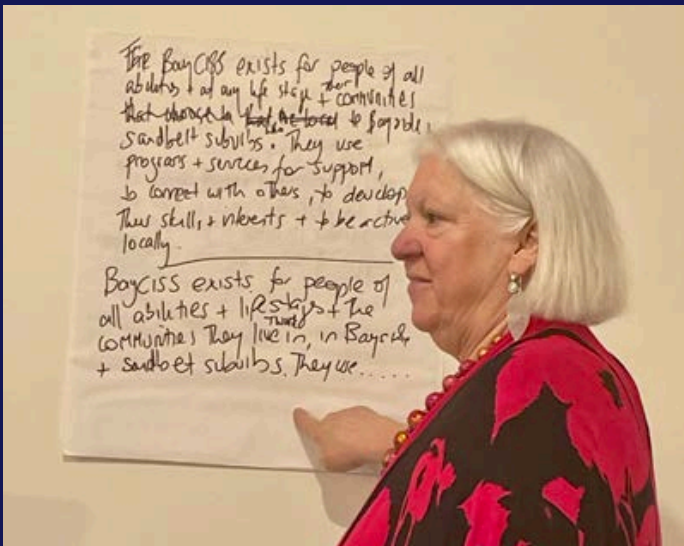 THE BayCISS exists for people of all
abilities + at any life stage + their communities
that choose to to Bayside,
sandbelt suburbs. They use
programs + services for support,
to connect with others, to develop
their skills + interests + to be active
locally.
BayCISS exists for people of
all abilities + life stages + the
communities they live in, in Bayside
+ sandbelt suburbs. They use.....